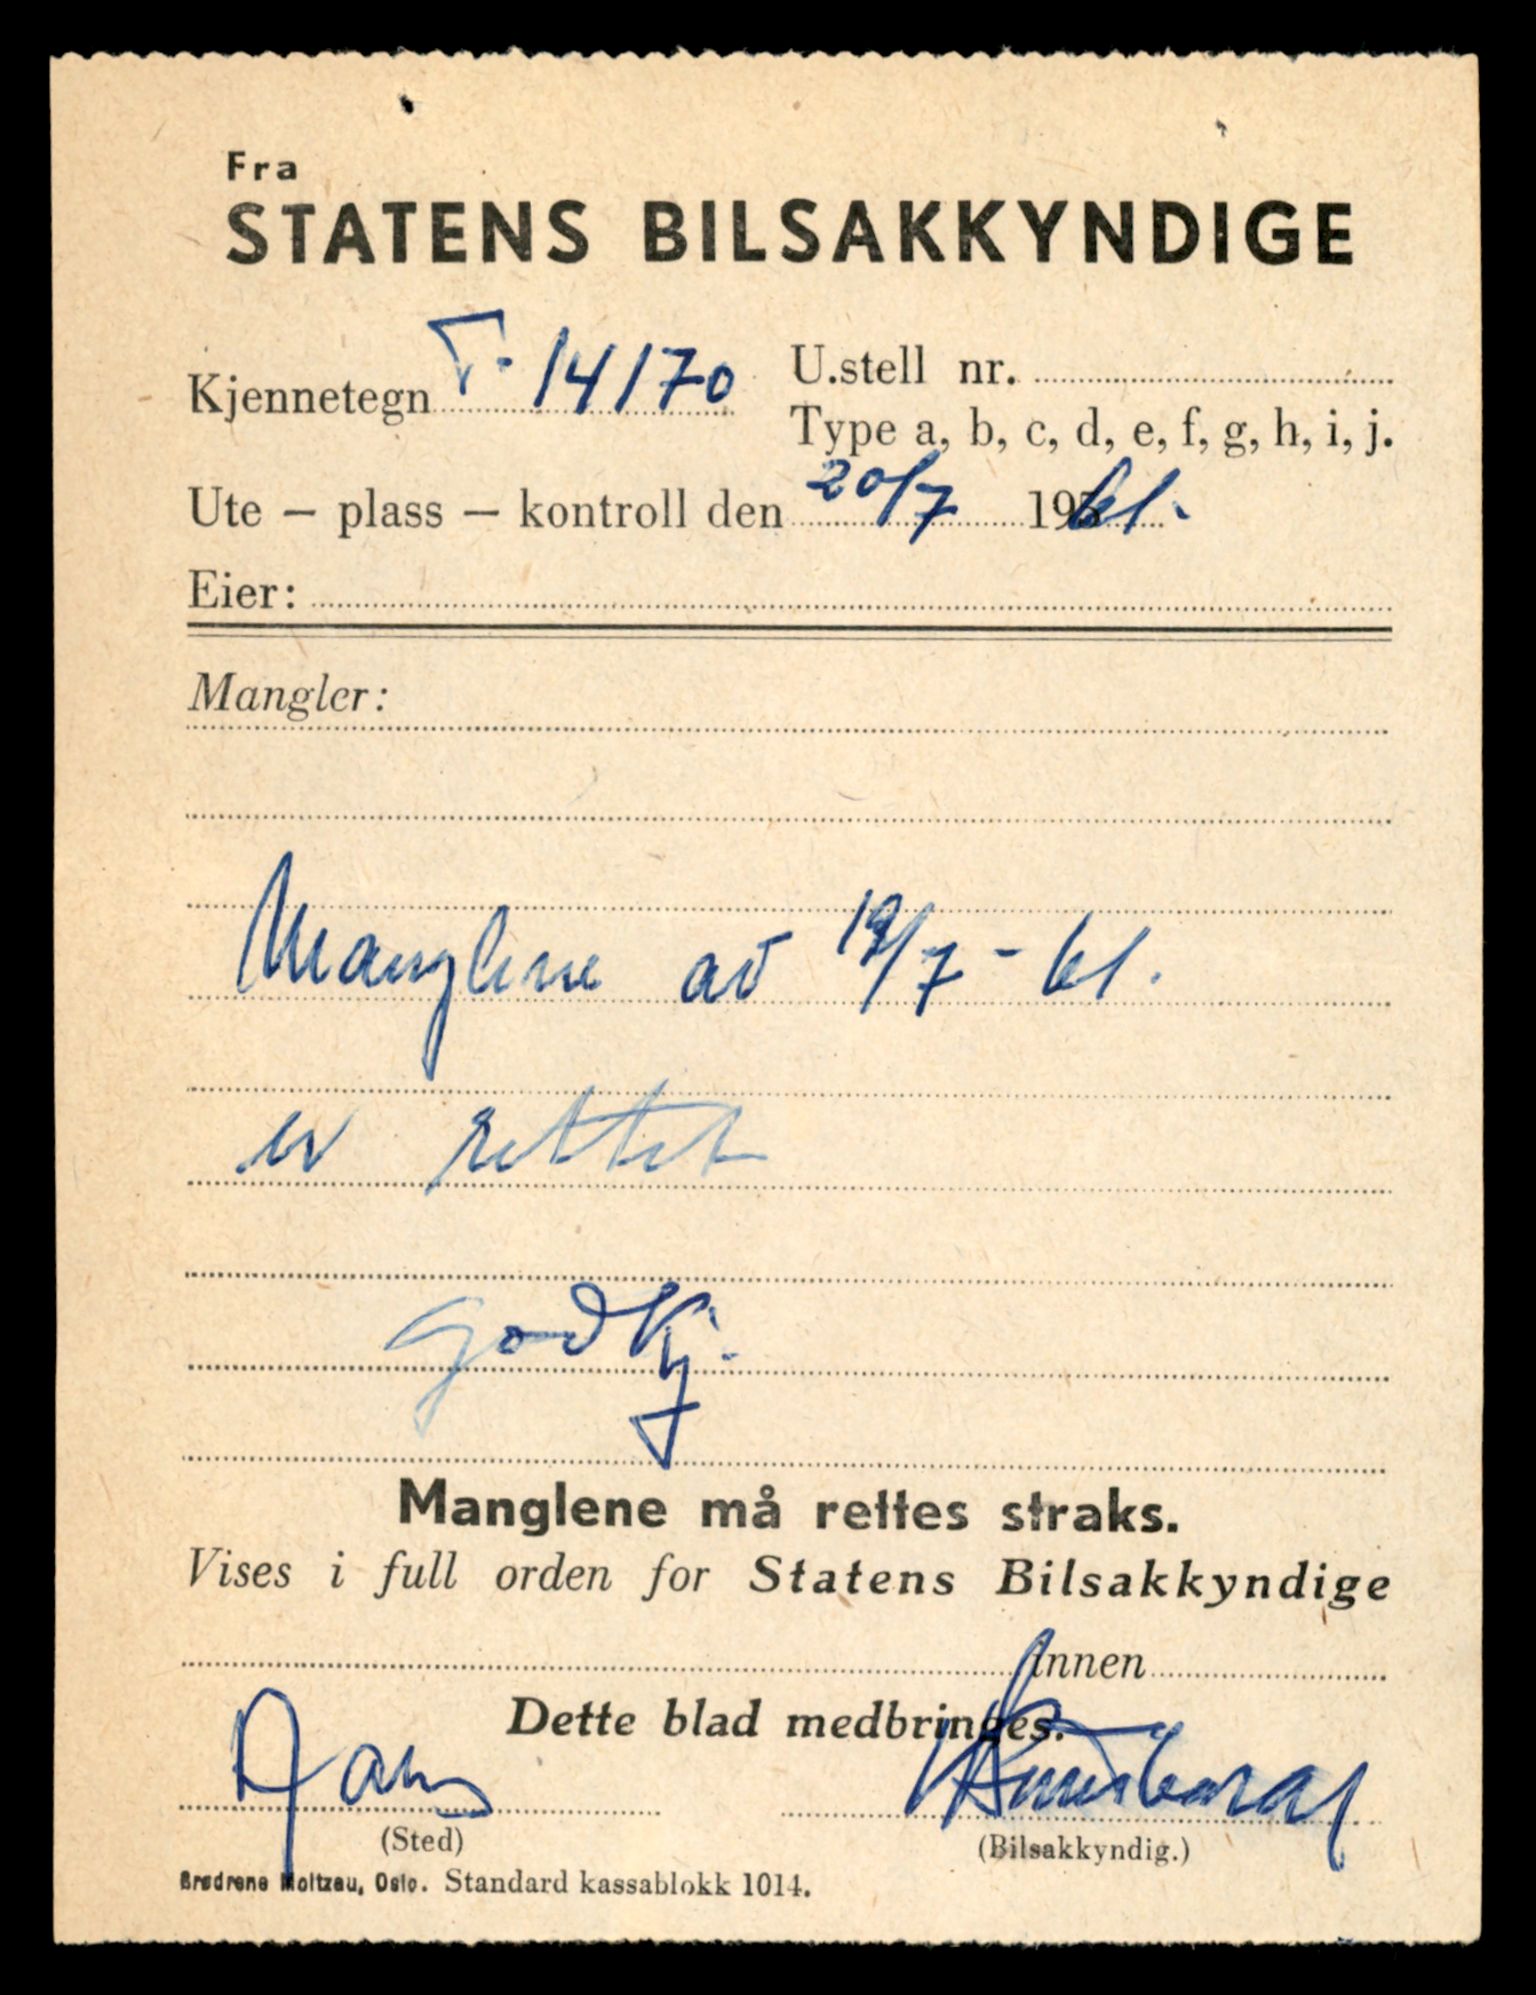 Fra
STATENS BILSAKKYNDIGE
Kjennetegn T-14170 U.stell nr.
Type a, b, c, d, e, f, g, h, i, j.
Ute – plass – kontroll den 20/7 1961.
Eier:
Mangler:
Manglene av 19/7-61.
er rettet
godkj.
Manglene må rettes straks.
Vises i full orden for Statens Bilsakkyndige
Innen
Dette blad medbringes.
(Sted) (Bilsakkyndig.)
Brødrene Moltzau, Oslo. Standard kassablokk 1014.